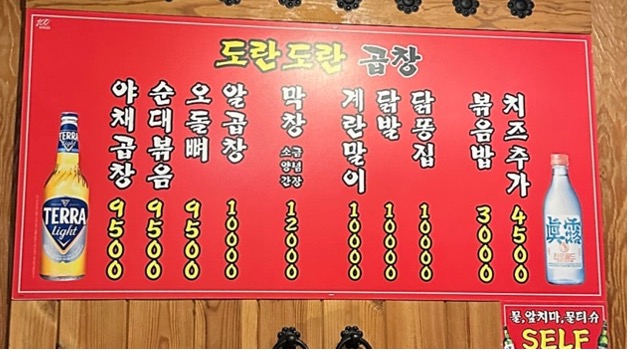 도란도란 곱창
야채곱창 9500
순대볶음 9500
오돌뼈 9500
알곱창 10000
막창 소금 양념 간장 12000
계란말이 10000
닭발 10000
닭똥집 10000
볶음밥 3000
치즈추가 4500
TERRA
Light
眞露
물,앞치마,물티슈
SELF